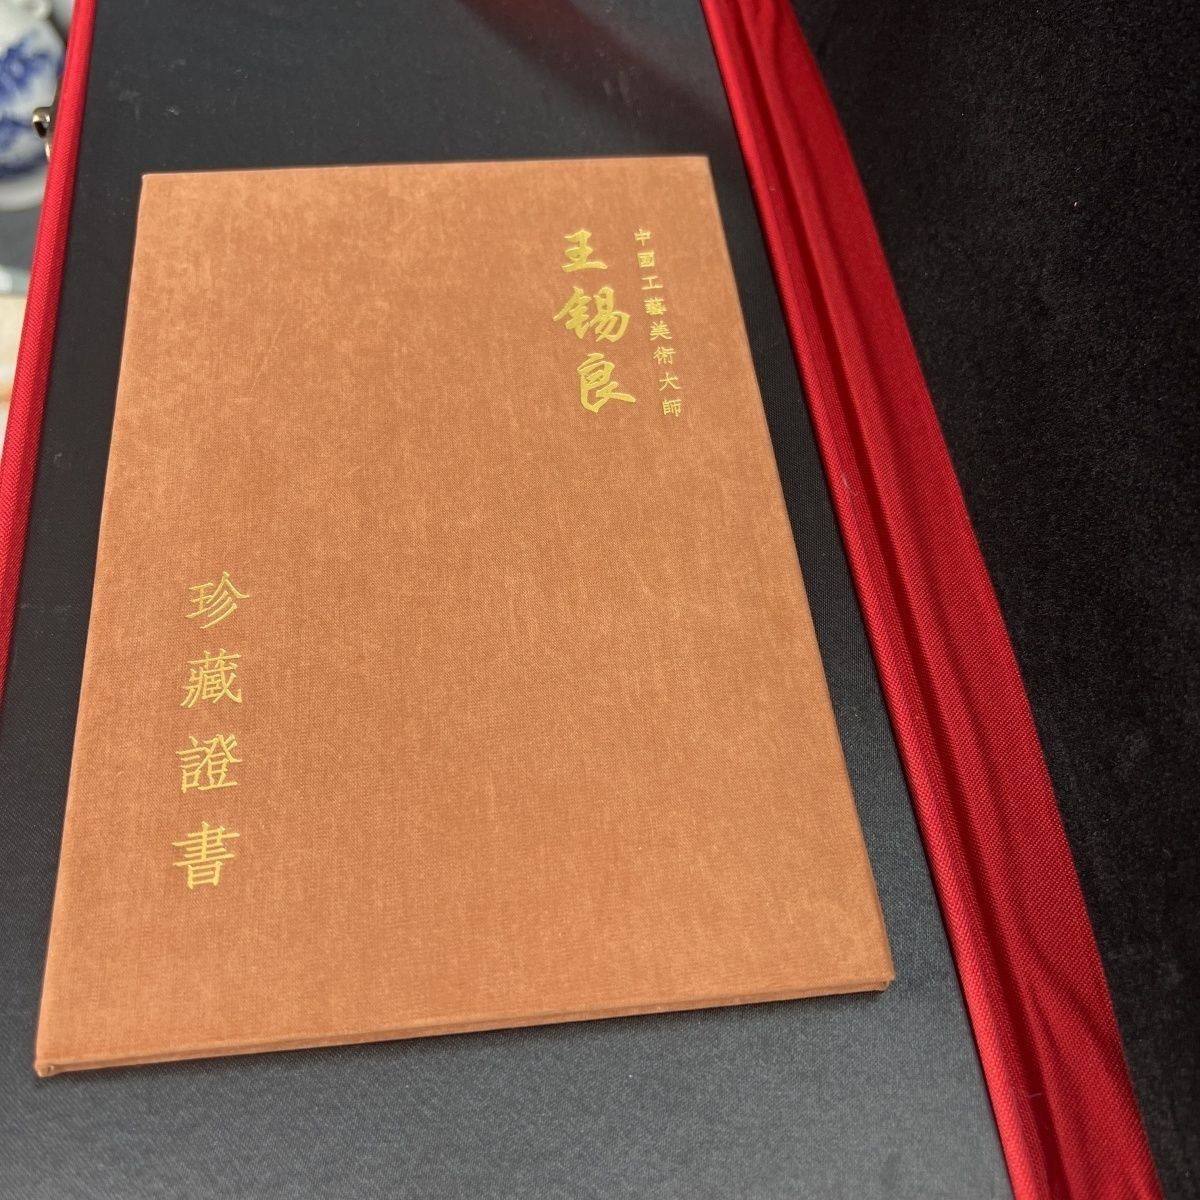 中国工藝美術大師
王錫良
珍藏證書